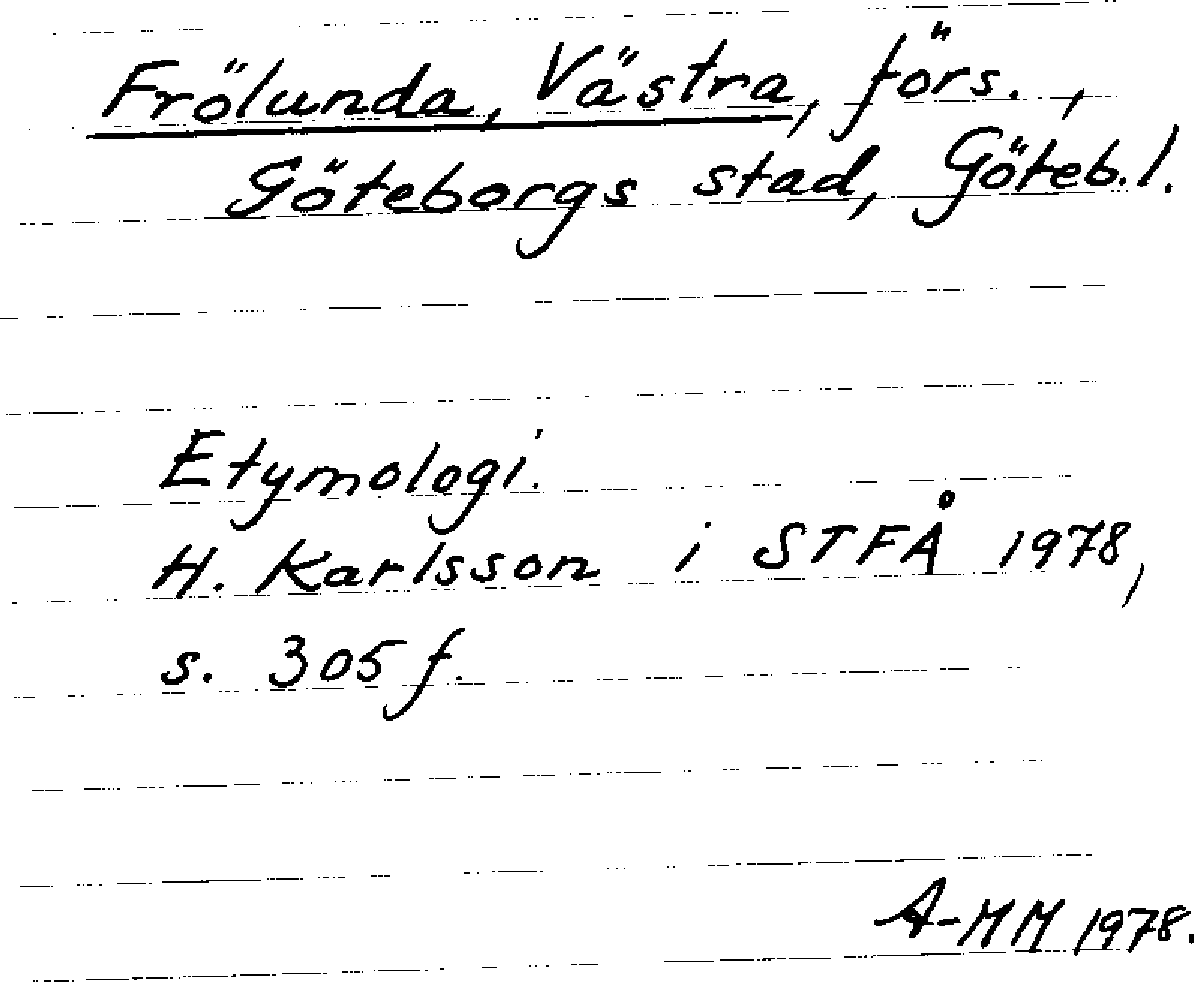 Frölunda, Västra, förs.,
Göteborgs stad, Göteb. l.
Etymologi.
H. Karlsson i STFÅ 1978,
s. 305 f.
A-MM 1978.